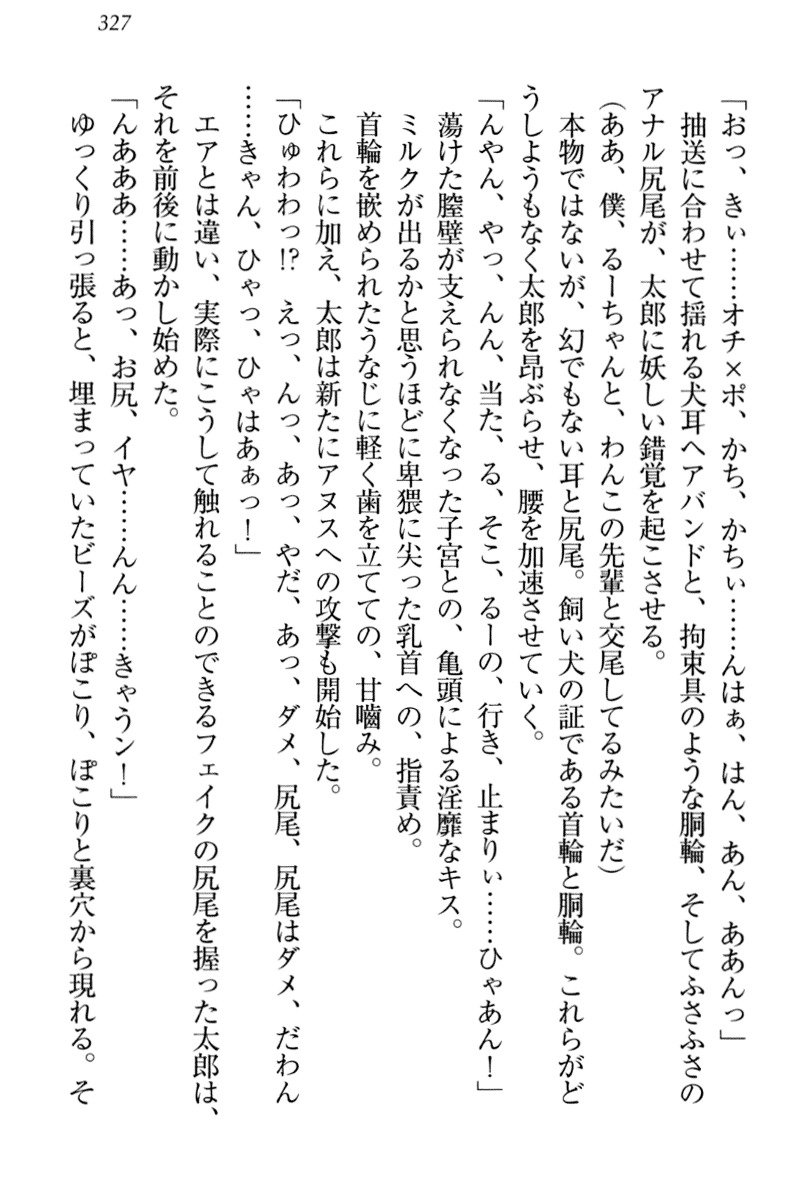 327
「おっ、きぃ……オチ×ポ、かち、かちぃ……んはぁ、はん、あん、ああんっ」
抽送に合わせて揺れる犬耳ヘアバンドと、拘束具のような胴輪、そしてふさふさの
アナル尻尾が、太郎に妖しい錯覚を起こさせる。
(ああ、僕、るーちゃんと、わんこの先輩と交尾してるみたいだ)
本物ではないが、幻でもない耳と尻尾。飼い犬の証である首輪と胴輪。これらがど
うしようもなく太郎を昂ぶらせ、腰を加速させていく。
「んやん、やっ、んん、当た、る、そこ、るーの、行き、止まりぃ……ひゃあん！」
蕩けた膣壁が支えられなくなった子宮との、亀頭による淫靡なキス。
ミルクが出るかと思うほどに卑猥に尖った乳首への、指責め。
首輪を嵌められたうなじに軽く歯を立てての、甘嚙み。
これらに加え、太郎は新たにアヌスへの攻撃も開始した。
「ひゅわわっ!?　えっ、んっ、あっ、やだ、あっ、ダメ、尻尾、尻尾はダメ、だわん
……きゃん、ひゃっ、ひゃはあぁっ！」
エアとは違い、実際にこうして触れることのできるフェイクの尻尾を握った太郎は、
それを前後に動かし始めた。
「んあああ……あっ、お尻、イヤ……んん……きゃうン！」
ゆっくり引っ張ると、埋まっていたビーズがぽこり、ぽこりと裏穴から現れる。そ